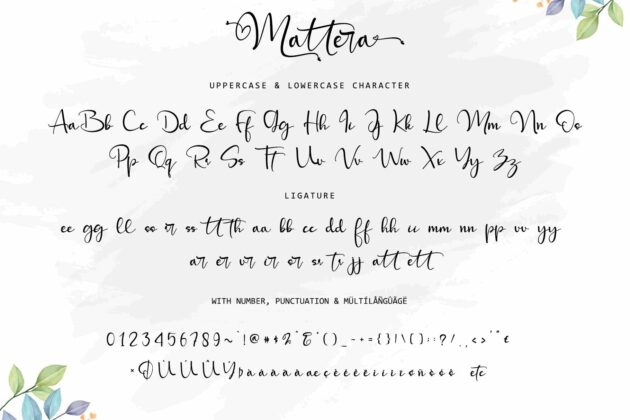 Mattera
UPPERCASE & LOWERCASE CHARACTER
AaBb Cc Dd Ee Ff Gg Hh Ii Jj Kk Ll Mm Nn Oo
Pp Qq Rr Ss Tt Uu Vv Ww Xx Yy Zz
LIGATURE
ee gg ll oo rr ss tt th aa bb cc dd ff hh ii mm nn pp vv yy
ar er vr ir or sr tr jj att ett
WITH NUMBER, PUNCTUATION & MÜLTÍLÂÑGÛÃGË
0123456789~`!@#$%^&*()_-+={}|\[]:;?/.,<>'"
etc